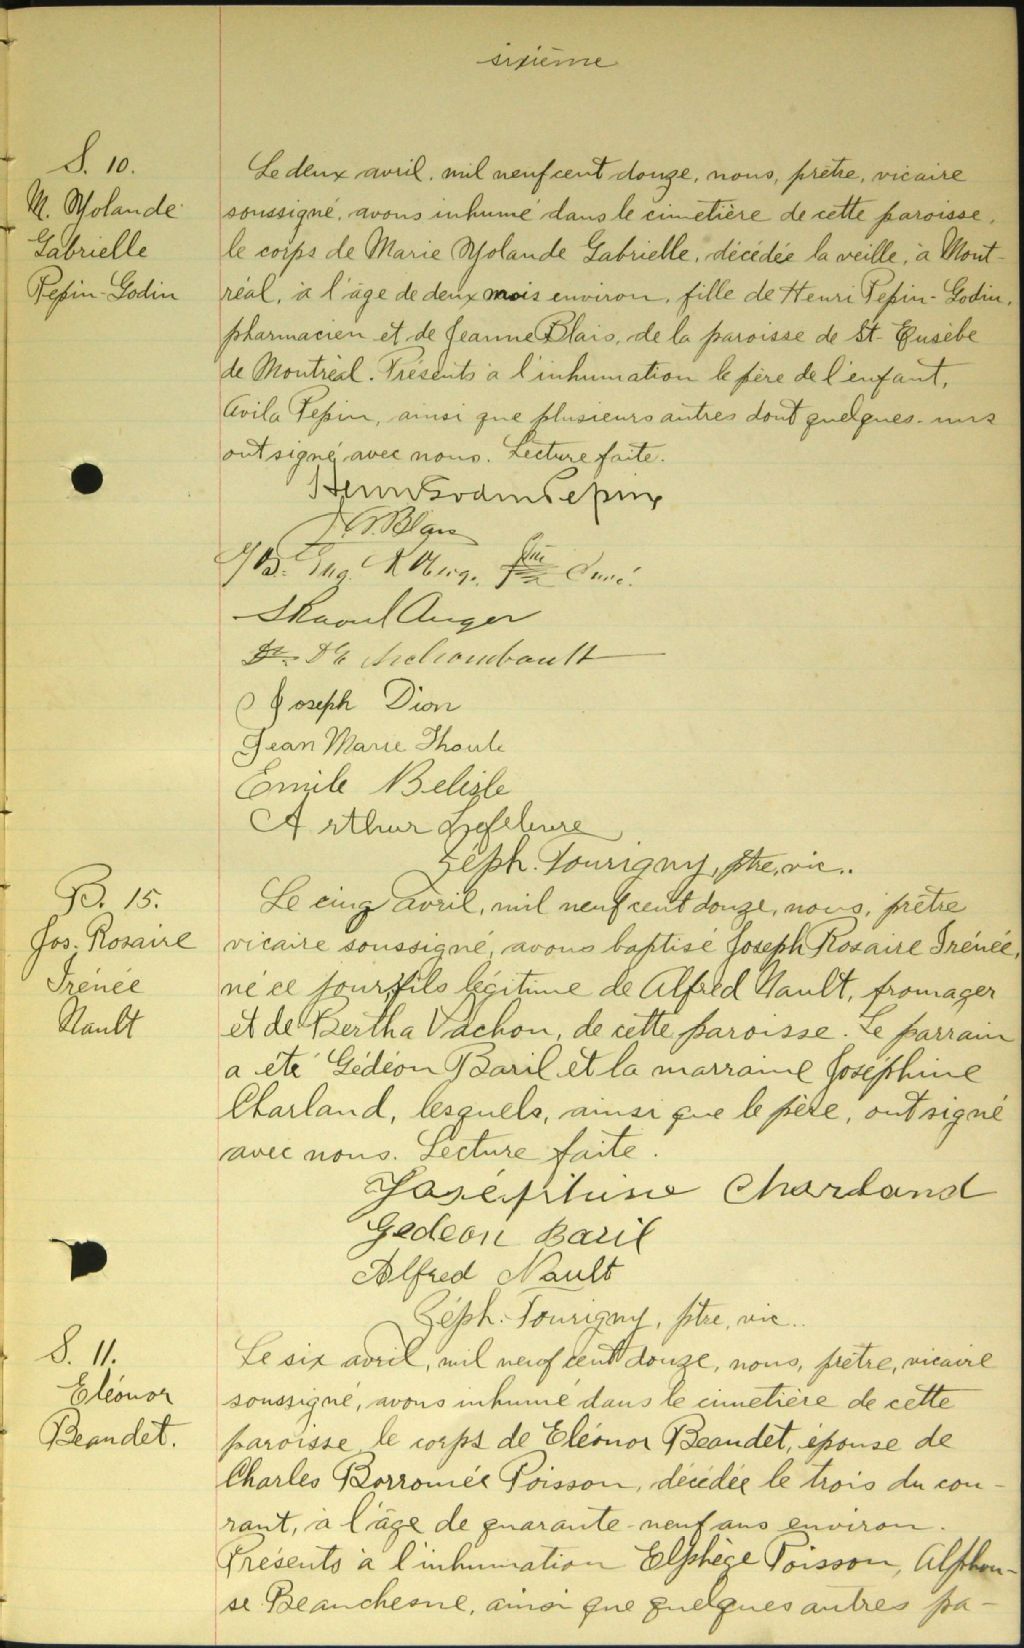 sixième
S. 10.
M. Yolande
Gabrielle
Pepin-Godin
Le deux avril, mil neuf cent douze, nous, prêtre, vicaire
soussigné, avons inhumé dans le cimetière de cette paroisse,
le corps de Marie Yolande Gabrielle, décédée la veille, à Mont-
réal, à l'âge de deux mois environ, fille de Henri Pepin-Godin,
pharmacien et de Jeanne Blais, de la paroisse de St-Eusèbe
de Montréal. Présents à l'inhumation le père de l'enfant,
Avila Pepin, ainsi que plusieurs autres dont quelques-uns
ont signé avec nous. Lecture faite.
Henri Godin Pepin
Blais
Curé.
S Raoul Auger
Dr. Archambault
Joseph Dion
Jean Marie
Emile Belisle
Arthur Lefebvre
Zéph. Tourigny, ptre, vic..
B. 15.
Jos. Rosaire
Irénée
Nault
Le cinq avril, mil neuf cent douze, nous, prêtre
vicaire soussigné, avons baptisé Joseph Rosaire Irénée,
né ce jour, fils légitime de Alfred Nault, fromager
et de Bertha Vachon, de cette paroisse. Le parrain
a été Gédéon Baril et la marraine Joséphine
Charland, lesquels, ainsi que le père, ont signé
avec nous. Lecture faite.
Joséphine Charland
Gedeon Baril
Alfred Nault
Zéph. Tourigny, ptre, vic..
S. 11.
Eléonor
Beaudet.
Le six avril, mil neuf cent douze, nous, prêtre, vicaire
soussigné, avons inhumé dans le cimetière de cette
paroisse, le corps de Eléonor Beaudet, épouse de
Charles Borromée Poisson, décédée le trois du cou-
rant, à l'âge de quarante-neuf ans environ.
Présents à l'inhumation Elphège Poisson, Alphon-
se Beauchesne, ainsi que quelques autres pa-